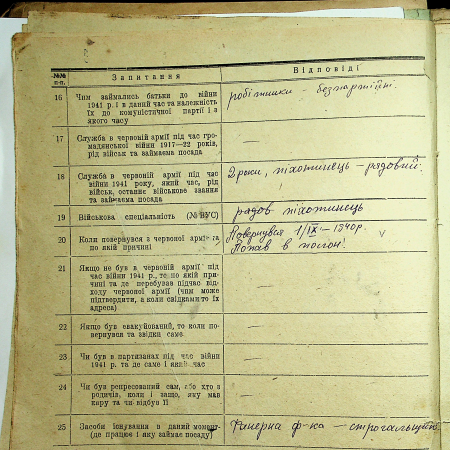 №№ п-п. Запитання Відповіді
16 Чим займались батьки до війни
1941 р. і в даний час та належність
їх до комуністичної партії і з
якого часу
робітники - безпартійні.
17 Служба в червоній армії під час гро-
мадянської війни 1917—22 років,
рід військ та займаєма посада
—
18 Служба в червоній армії під час
війни 1941 року, який час, рід
військ, останнє військове звання
та займаєма посада
2 роки, піхотинець - рядовий.
19 Військова спеціальність (№ ВУС)
рядов піхотинець
20 Коли повернувся з червоної армії та
по якій причині
Повернувся 1/IX - 1940 р.
Попав в полон.
21 Якщо не був в червоній армії під
час війни 1941 р., то по якій при-
чині та де перебував підчас від-
ходу червоної армії (чим може
підтвердити, а коли свідками то їх
адреса)
—
22 Якщо був евакуйований, то коли по-
вернувся та звідки саме
—
23 Чи був в партизанах під час війни
1941 р. та де саме і який час
—
24 Чи був репресований сам, або хто з
родичів, коли і защо, яку мав
кару та чи відбув її
—
25 Засоби існування в даний момент
(де працює і яку займає посаду)
Фанерна ф-ка -